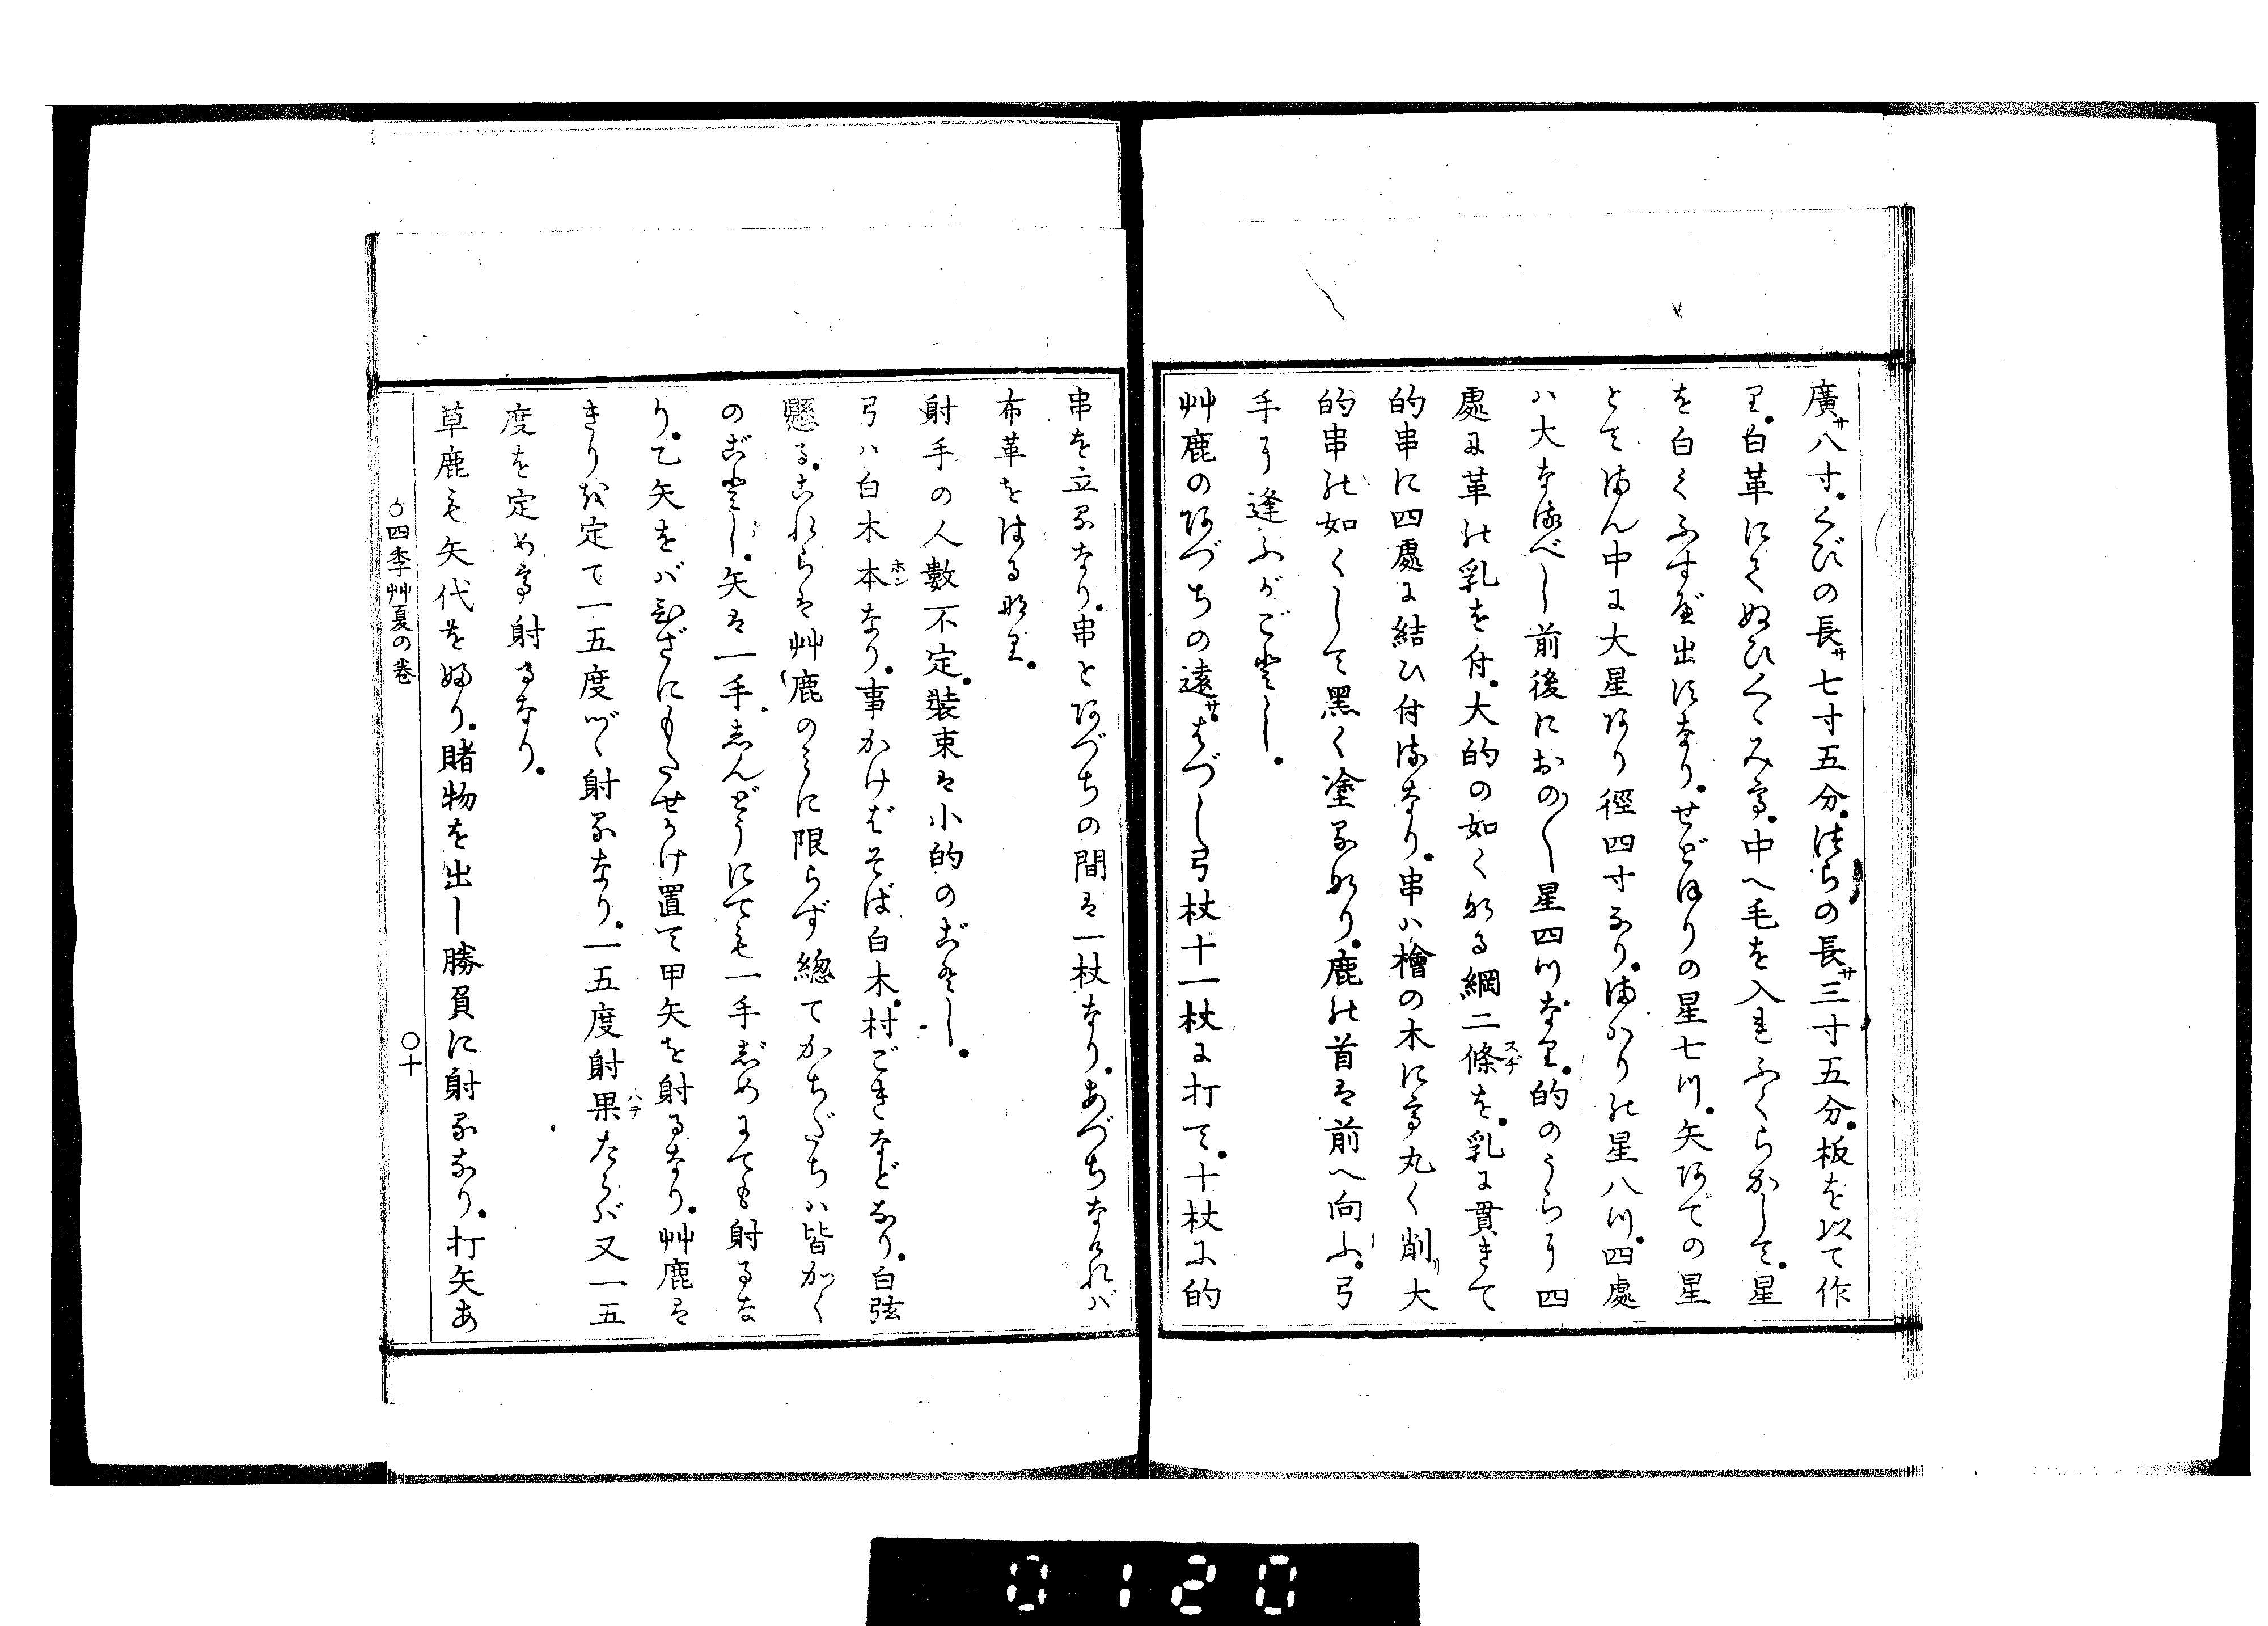 廣サ八寸。くびの長サ七寸五分。つらの長サ三寸五分。板を以て作
り。白革にてぬひくゝみて。中へ毛を入れふくらかして。星
を白くふすべ出すなり。せどほりの星七ツ。矢あての星
とてまん中に大星あり徑四寸なり。まはりの星八ツ。四處
ハ大なるべし前後におの〳〵星四ツなり。的のうらに四
處に革の乳を付。大的の如くなる綱二條スヂを。乳に貫きて
的串に四處に結ひ付るなり。串ハ檜の木にて丸く削リ大
的串の如くして黑く塗るなり。鹿の首は前へ向ふ。弓
手に逢ふがごとし。
艸鹿のあづちの遠サ。はづし弓杖十一杖に打て。十杖に的
串を立るなり。串とあづちの間は一杖なり。あづちなければ
布革をはるなり。
射手の人數不定。裝束は小的のごとし。
弓ハ白木本ホンなり。事かけばそば白木。村ごきなどなり。白弦
懸る。これらは艸鹿のみに限らず總てかちだちハ皆かく
のごとし。矢は一手。志んどうにても一手じめにても射るな
り。乙矢をバひざにもたせかけ置て甲矢を射るなり。艸鹿は
きりを定て一五度ヅヽ射るなり。一五度射果ハテたらバ又一五
度を定めて射るなり。
草鹿も矢代をふり。賭物を出し勝負に射るなり。打矢あ
○四季艸夏の卷
○十